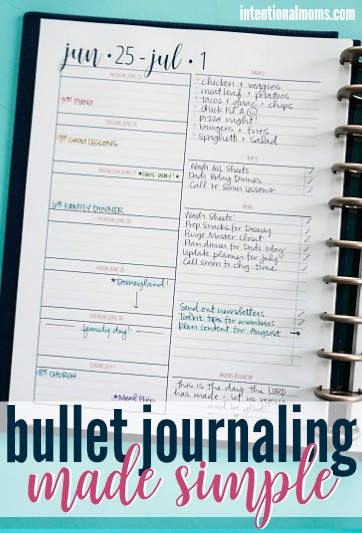 intentionalmoms.com
jun • 25 - jul • 1
MONDAY, JUNE 25
3:45 PIANO
TUESDAY, JUNE 26
9:45 SWIM LESSONS
WEDNESDAY, JUNE 27
*DAD'S BDAY!*
6:00 FAMILY DINNER
THURSDAY, JUNE 28
*Disneyland!
family day!
SUNDAY, JULY 1
CHURCH
*Meal Prep
chicken + veggies
meatloaf + potatoes
tacos + guac + chips
chick fil A
pizza night
burgers + fries
spaghetti + salad
TOP 3
Wash ALL Sheets
Dad's Bday Dinner
Call re Swim Lessons
Wash Sheets!
Prep Snacks for Disney
Purge Master closet
Plan dinner for Dad's bday
Update planner for July
Call swim to chg. time
Send out newsletters
Toolkit tips for members
Plan content for August
WORDS TO LIVE BY
this is the day the LORD
has made - let us rejoice
and be glad!
bullet journaling
made simple